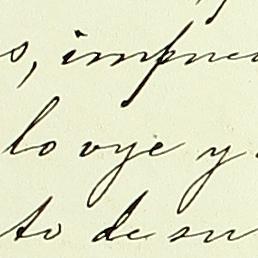 s, impne
lo oye y
to de su